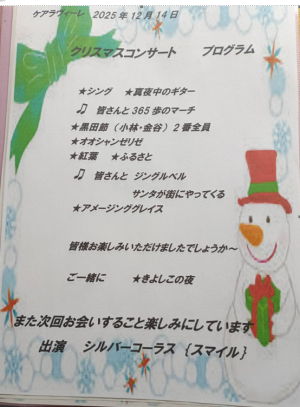 ケアラヴィーレ 2025年12月14日
クリスマスコンサート プログラム
★シング ★真夜中のギター
♫ 皆さんと365歩のマーチ
★黒田節（小林・金谷）2番全員
★オオシャンゼリゼ
★紅葉 ★ふるさと
♫ 皆さんと ジングルベル
サンタが街にやってくる
★アメージンググレイス
皆様お楽しみいただけましたでしょうか～
ご一緒に ★きよしこの夜
また次回お会いすること楽しみにしています
出演 シルバーコーラス {スマイル}